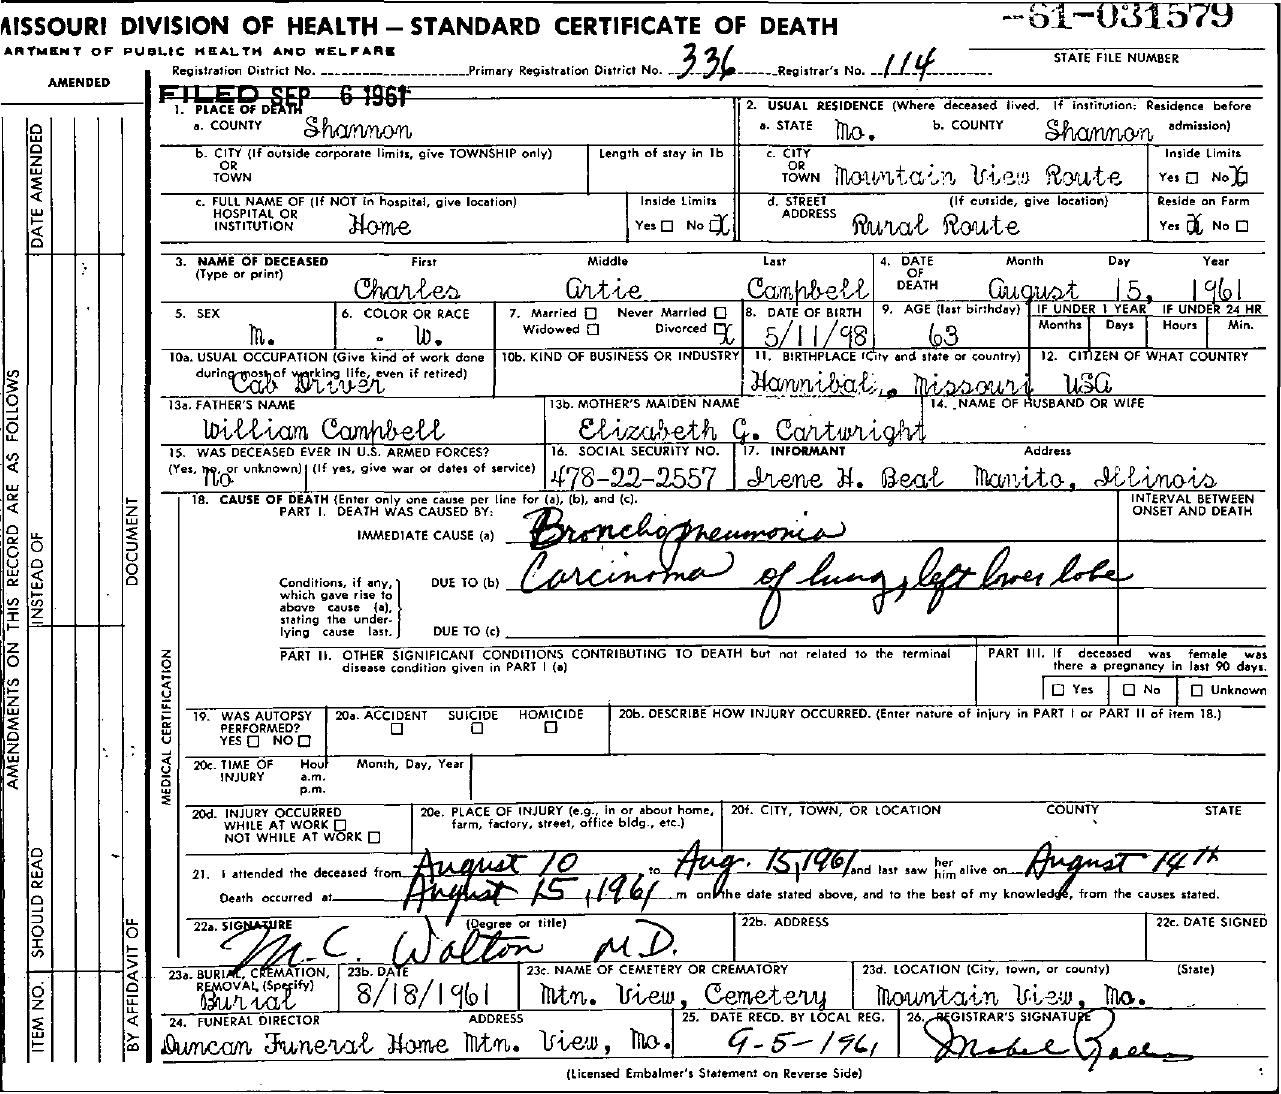 MISSOURI DIVISION OF HEALTH — STANDARD CERTIFICATE OF DEATH
-61-031579
ARTMENT OF PUBLIC HEALTH AND WELFARE
STATE FILE NUMBER
Registration District No. Primary Registration District No. 336 Registrar's No. 114
AMENDED
FILED SEP 6 1961
1. PLACE OF DEATH
a. COUNTY Shannon
2. USUAL RESIDENCE (Where deceased lived. If institution: Residence before admission)
a. STATE Mo. b. COUNTY Shannon
b. CITY (If outside corporate limits, give TOWNSHIP only)
OR
TOWN
Length of stay in 1b
c. CITY
OR
TOWN Mountain View Route
Inside Limits
Yes No X
c. FULL NAME OF (If NOT in hospital, give location)
HOSPITAL OR
INSTITUTION Home
Inside Limits
Yes No X
d. STREET (If outside, give location)
ADDRESS Rural Route
Reside on Farm
Yes X No
3. NAME OF DECEASED First Middle Last
(Type or print) Charles Artie Campbell
4. DATE Month Day Year
OF
DEATH August 15, 1961
5. SEX
M.
6. COLOR OR RACE
W.
7. Married Never Married
Widowed Divorced X
8. DATE OF BIRTH
5/11/98
9. AGE (last birthday)
63
IF UNDER 1 YEAR
Months Days
IF UNDER 24 HR
Hours Min.
10a. USUAL OCCUPATION (Give kind of work done
during most of working life, even if retired)
Cab Driver
10b. KIND OF BUSINESS OR INDUSTRY
11. BIRTHPLACE (City and state or country)
Hannibal, Missouri
12. CITIZEN OF WHAT COUNTRY
USA
13a. FATHER'S NAME
William Campbell
13b. MOTHER'S MAIDEN NAME
Elizabeth G. Cartwright
14. NAME OF HUSBAND OR WIFE
15. WAS DECEASED EVER IN U.S. ARMED FORCES?
(Yes, no, or unknown) (If yes, give war or dates of service)
no
16. SOCIAL SECURITY NO.
478-22-2557
17. INFORMANT Address
Irene H. Beal Manito, Illinois
18. CAUSE OF DEATH (Enter only one cause per line for (a), (b), and (c).
PART I. DEATH WAS CAUSED BY:
INTERVAL BETWEEN
ONSET AND DEATH
IMMEDIATE CAUSE (a) Bronchopneumonia
Conditions, if any,
which gave rise to
above cause (a),
stating the under-
lying cause last.
DUE TO (b) Carcinoma of lung, left lower lobe
DUE TO (c)
PART II. OTHER SIGNIFICANT CONDITIONS CONTRIBUTING TO DEATH but not related to the terminal
disease condition given in PART I (a)
PART III. If deceased was female was
there a pregnancy in last 90 days.
Yes No Unknown
19. WAS AUTOPSY
PERFORMED?
YES NO
20a. ACCIDENT SUICIDE HOMICIDE
20b. DESCRIBE HOW INJURY OCCURRED. (Enter nature of injury in PART I or PART II of item 18.)
20c. TIME OF Hour Month, Day, Year
INJURY a.m.
p.m.
20d. INJURY OCCURRED
WHILE AT WORK
NOT WHILE AT WORK
20e. PLACE OF INJURY (e.g., in or about home,
farm, factory, street, office bldg., etc.)
20f. CITY, TOWN, OR LOCATION COUNTY STATE
21. I attended the deceased from August 10 to Aug. 15, 1961 and last saw her him alive on August 14th
Death occurred at August 15, 1961 m on the date stated above, and to the best of my knowledge, from the causes stated.
22a. SIGNATURE (Degree or title)
M.C. Walton M.D.
22b. ADDRESS
22c. DATE SIGNED
23a. BURIAL, CREMATION,
REMOVAL (Specify)
Burial
23b. DATE
8/18/1961
23c. NAME OF CEMETERY OR CREMATORY
Mtn. View, Cemetery
23d. LOCATION (City, town, or county) (State)
Mountain View, Mo.
24. FUNERAL DIRECTOR ADDRESS
Duncan Funeral Home Mtn. View, Mo.
25. DATE RECD. BY LOCAL REG.
9-5-1961
26. REGISTRAR'S SIGNATURE
Mabel
(Licensed Embalmer's Statement on Reverse Side)
AMENDMENTS ON THIS RECORD ARE AS FOLLOWS
DATE AMENDED
INSTEAD OF
DOCUMENT
SHOULD READ
ITEM NO.
BY AFFIDAVIT OF
MEDICAL CERTIFICATION